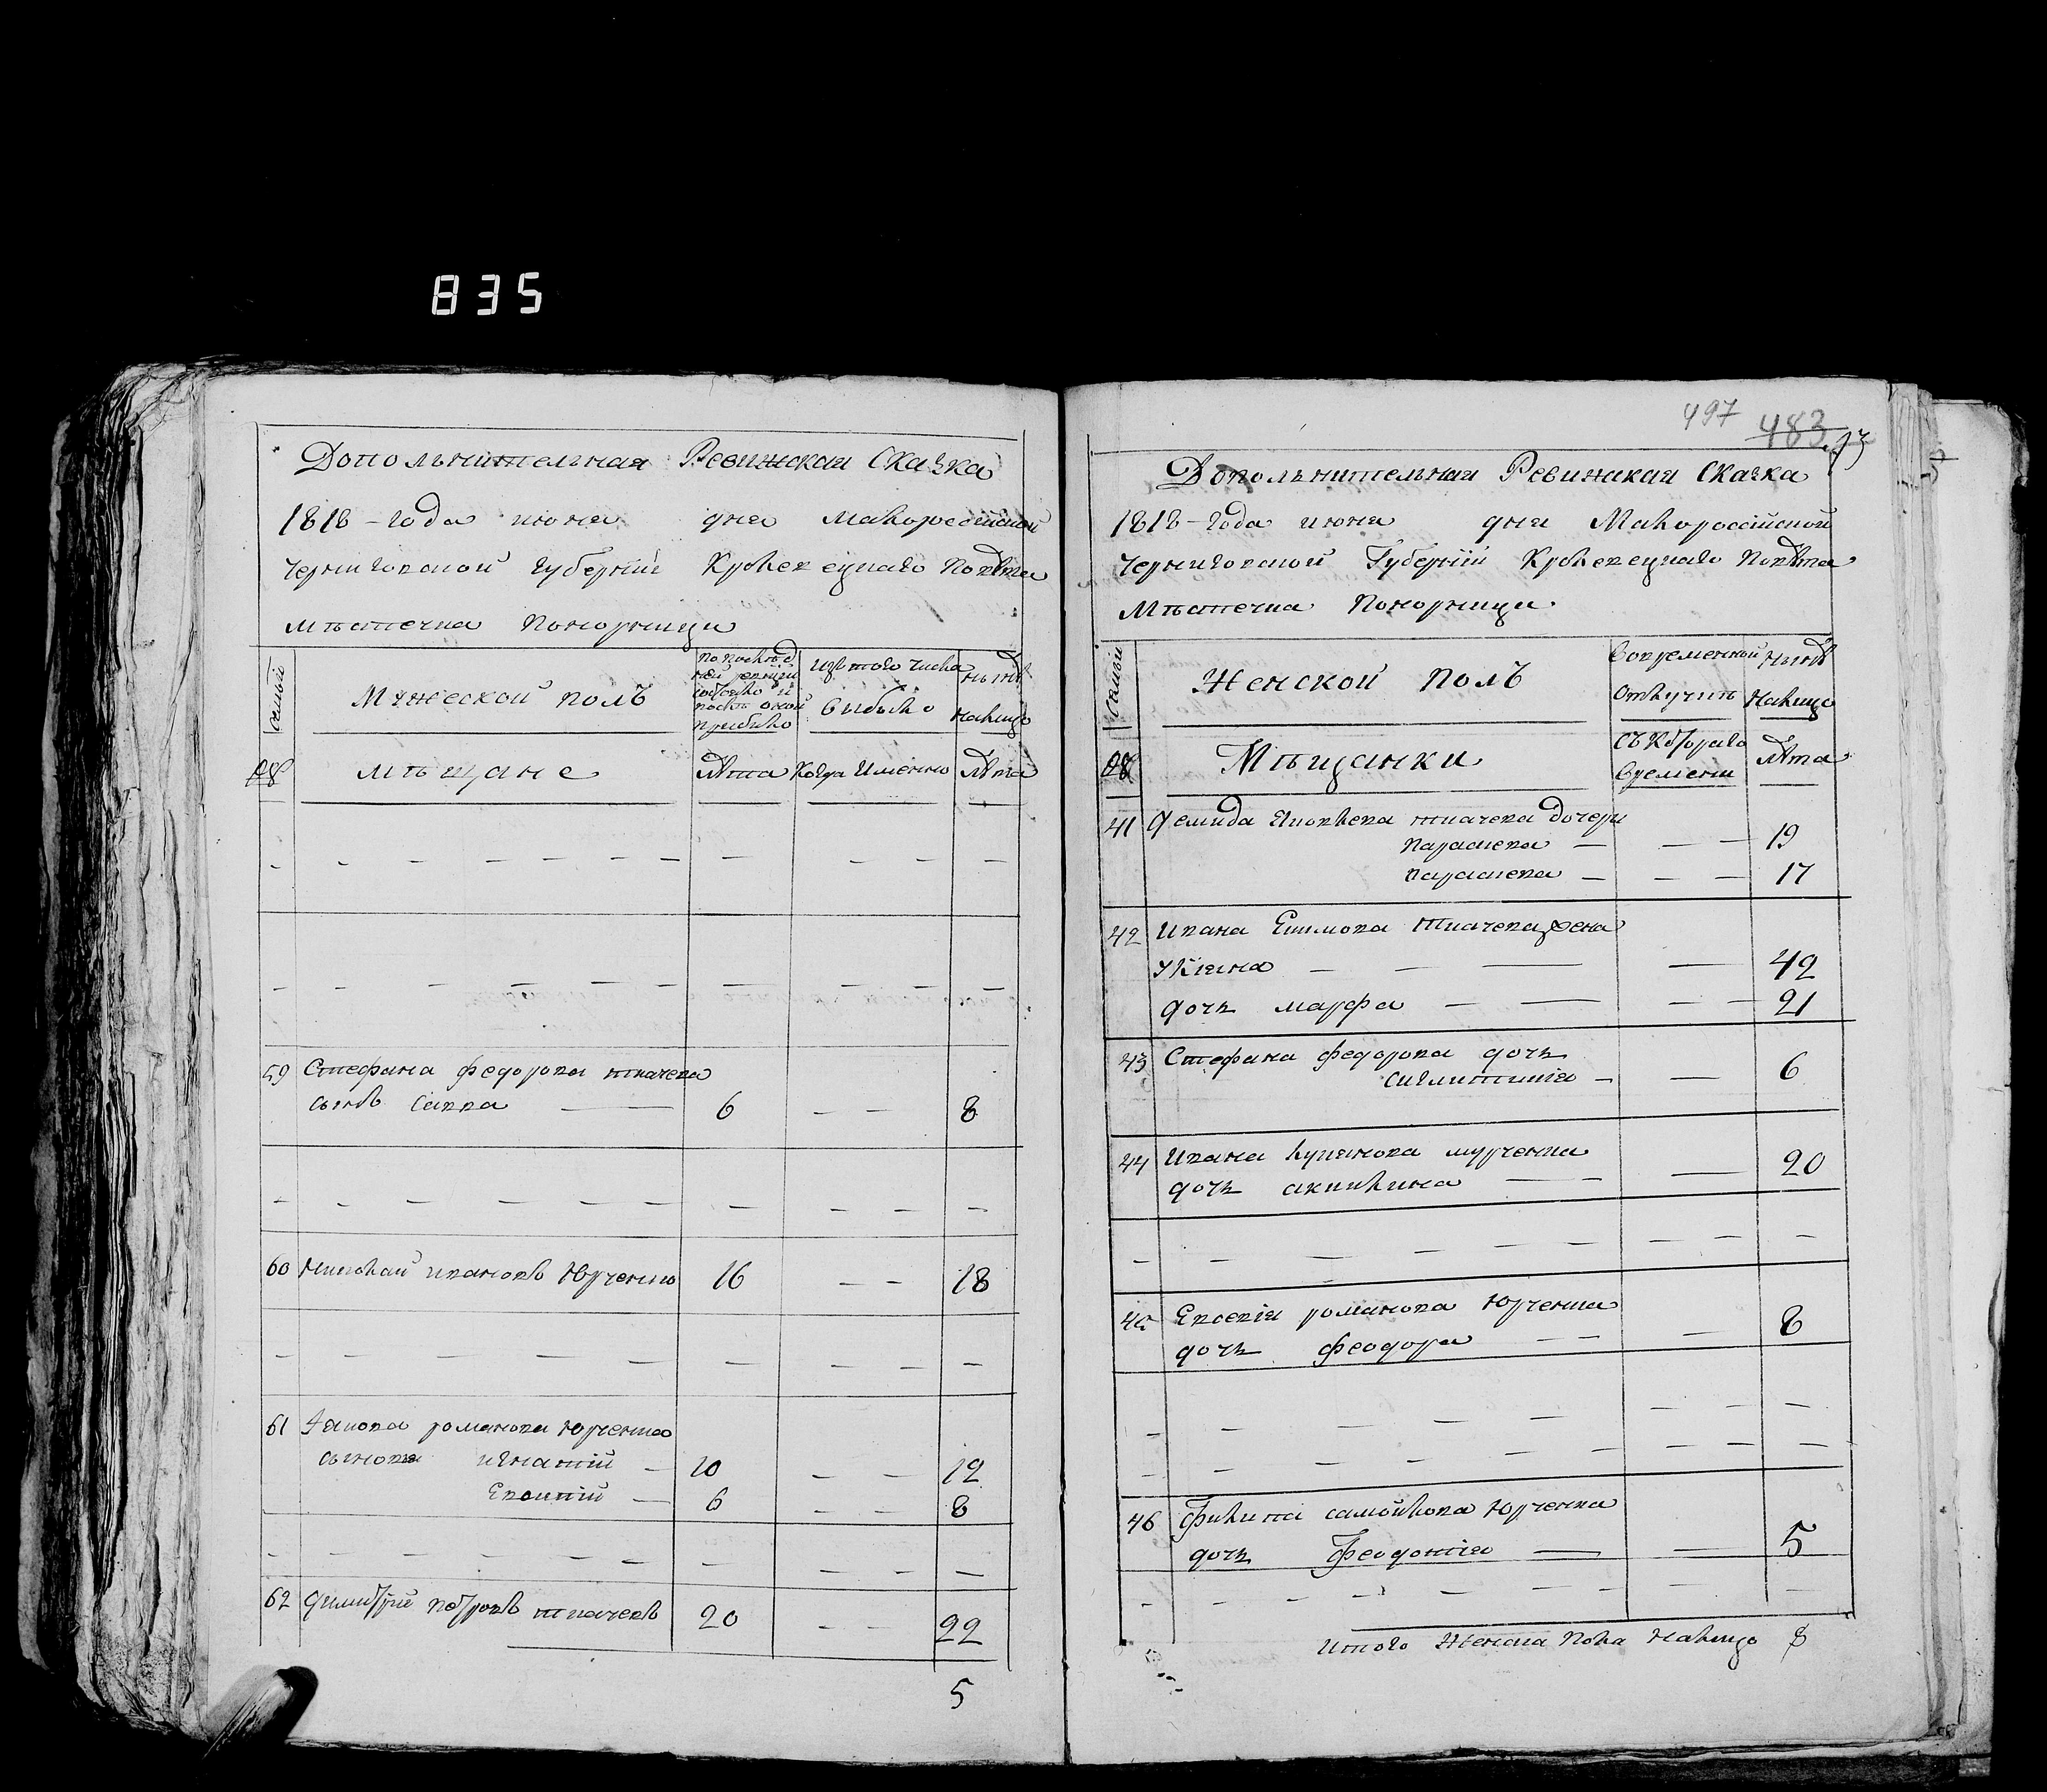 835
Допольнительная Ревижская Сказка
1818 – года июня дня Малороссійской
Черниговской Губерніи Кролевецкаго Повѣта
мѣстечка Понорници
семьи
Мужеской полъ
по послѣд
ней ревизіи
состояло и
послѣ оной
прибыло
изъ того числа
выбыло
нынѣ
налицо
№
мѣщане
лѣта
Когда Именно
лѣта
59 Стефана федорова ткачева
сынъ Савва — 6 – – 8
60 Николай ивановъ Юрченко 16 – – 18
61 Якова романова Юрченка
сыновя игнатій – 10 – – 12
6 – – 8
62 Димитрій петровъ ткачевъ 20 – – 22
5
497 483
Допольнительная Ревижская Сказка
1818 – года июня дня Малороссійской
Черниговской Губерніи Кролевецкаго Повѣта
Мѣстечка Понорници
семьи
Женской полъ
Вовременной
Отлучкѣ
Нынѣ
Налицо
№
Мѣщанки
Съ Котораго
Времени
лѣта
41 Демида Яковлева ткачева дочери
параскева — – – 19
параскева – – – 17
42 Ивана Ефимова Ткачева жена
Улiяна – – — — 42
дочь марфа – — – – 21
43 Стефана федорова дочь
– — 6
44 Ивана
дочь акилина — – — 20
45 Евсевія романова Юрченка
дочь феодора – – – 8
46 Филипа самойлова Юрченка
дочь Феодотія — — 5
Итого Женска Пола Налицо 8